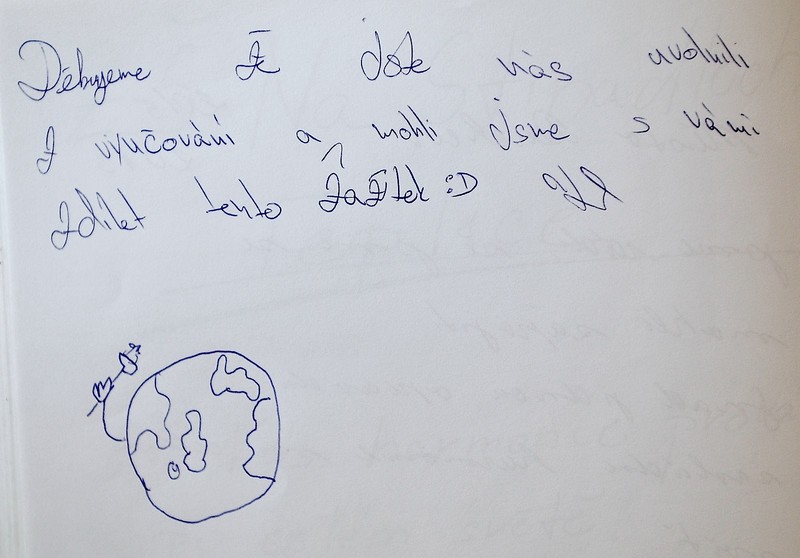 Děkujeme že jste nás uvolnili
z vyučování a mohli jsme s vámi
zdílet tento zážitek :D